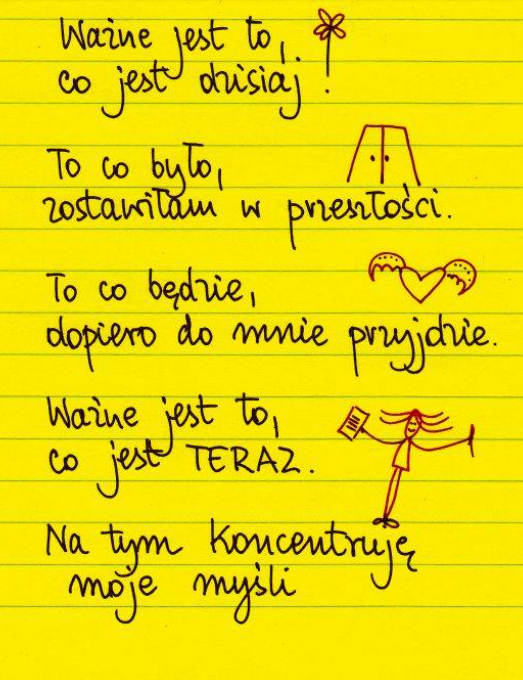 Ważne jest to,
co jest dzisiaj.
To co było,
zostawiłam w przeszłości.
To co będzie,
dopiero do mnie przyjdzie.
Ważne jest to,
co jest TERAZ.
Na tym koncentruję
moje myśli